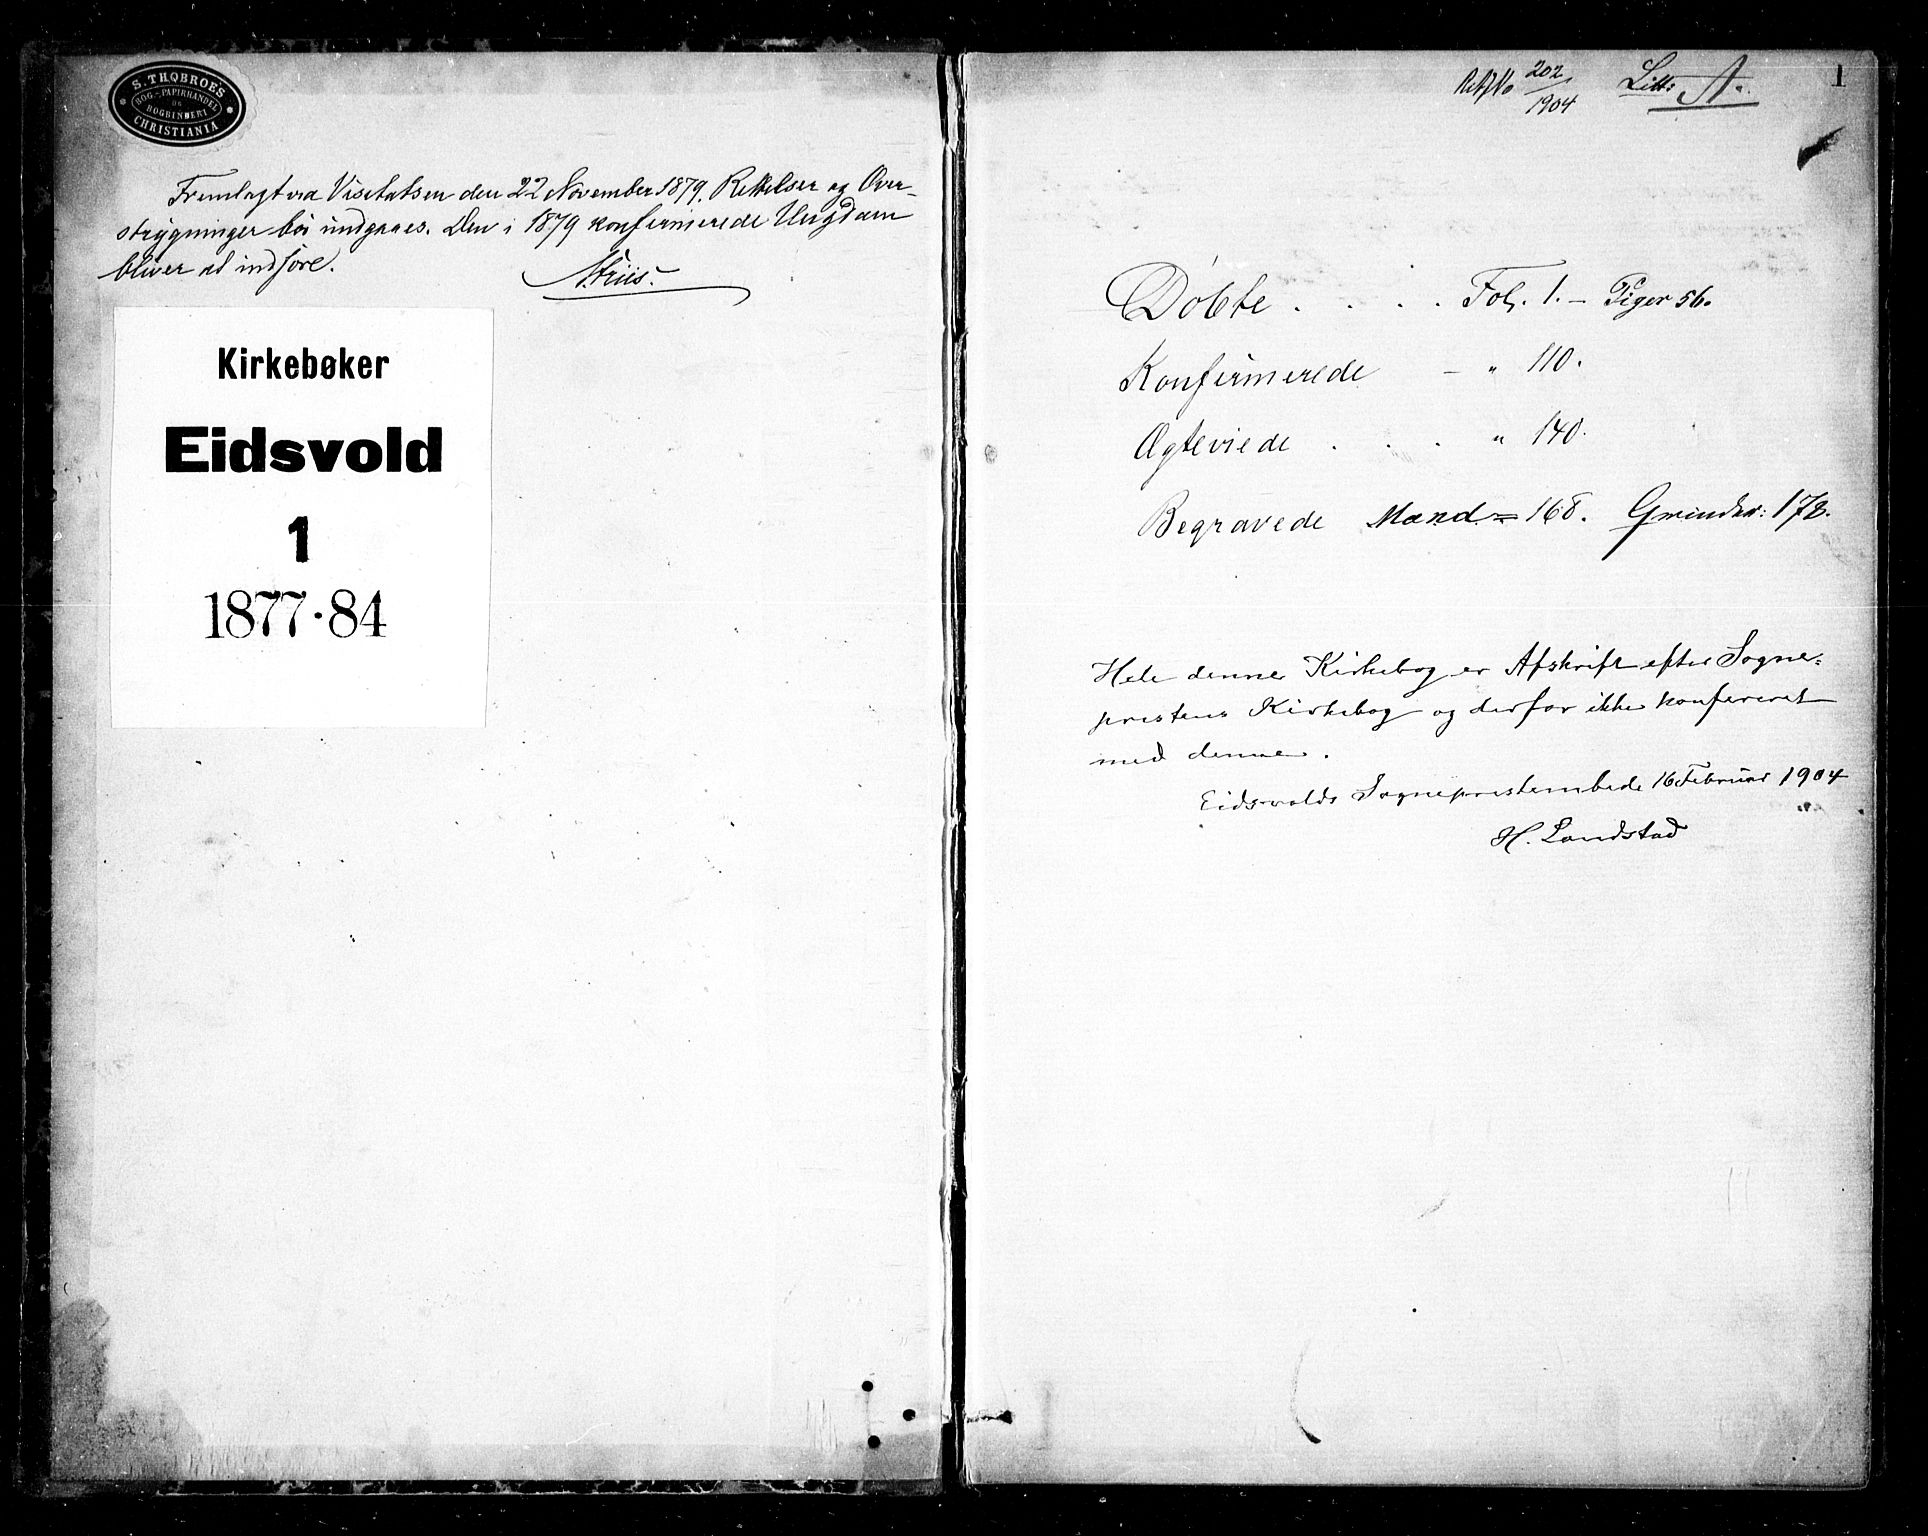 S. THOBROES
BOG- & PAPIRHANDEL
OG
BOGBINDERI
CHRISTIANIA
Fremlagt ved Visitatsen den 22 November 1879. Rettelser og Over-
strygninger bør undgaaes. Den i 1879 konfirmerede Ungdom
bliver at indføre.
Kirkebøker
Eidsvold
1
1877-84
202/1904 Litt: A.
1
Døbte . . . . Fol. 1. – Piger 56.
Konfirmerede – " 110.
Ægteviede . . . " 140.
Begravede Mænd = 168. Qvinder: 178.
Hele denne Kirkebog er Afskrift efter Sogne-
prestens Kirkebog og derfor ikke konfereret
med denne.
Eidsvolds Sogneprestembede 16 Februar 1904
H. Landstad